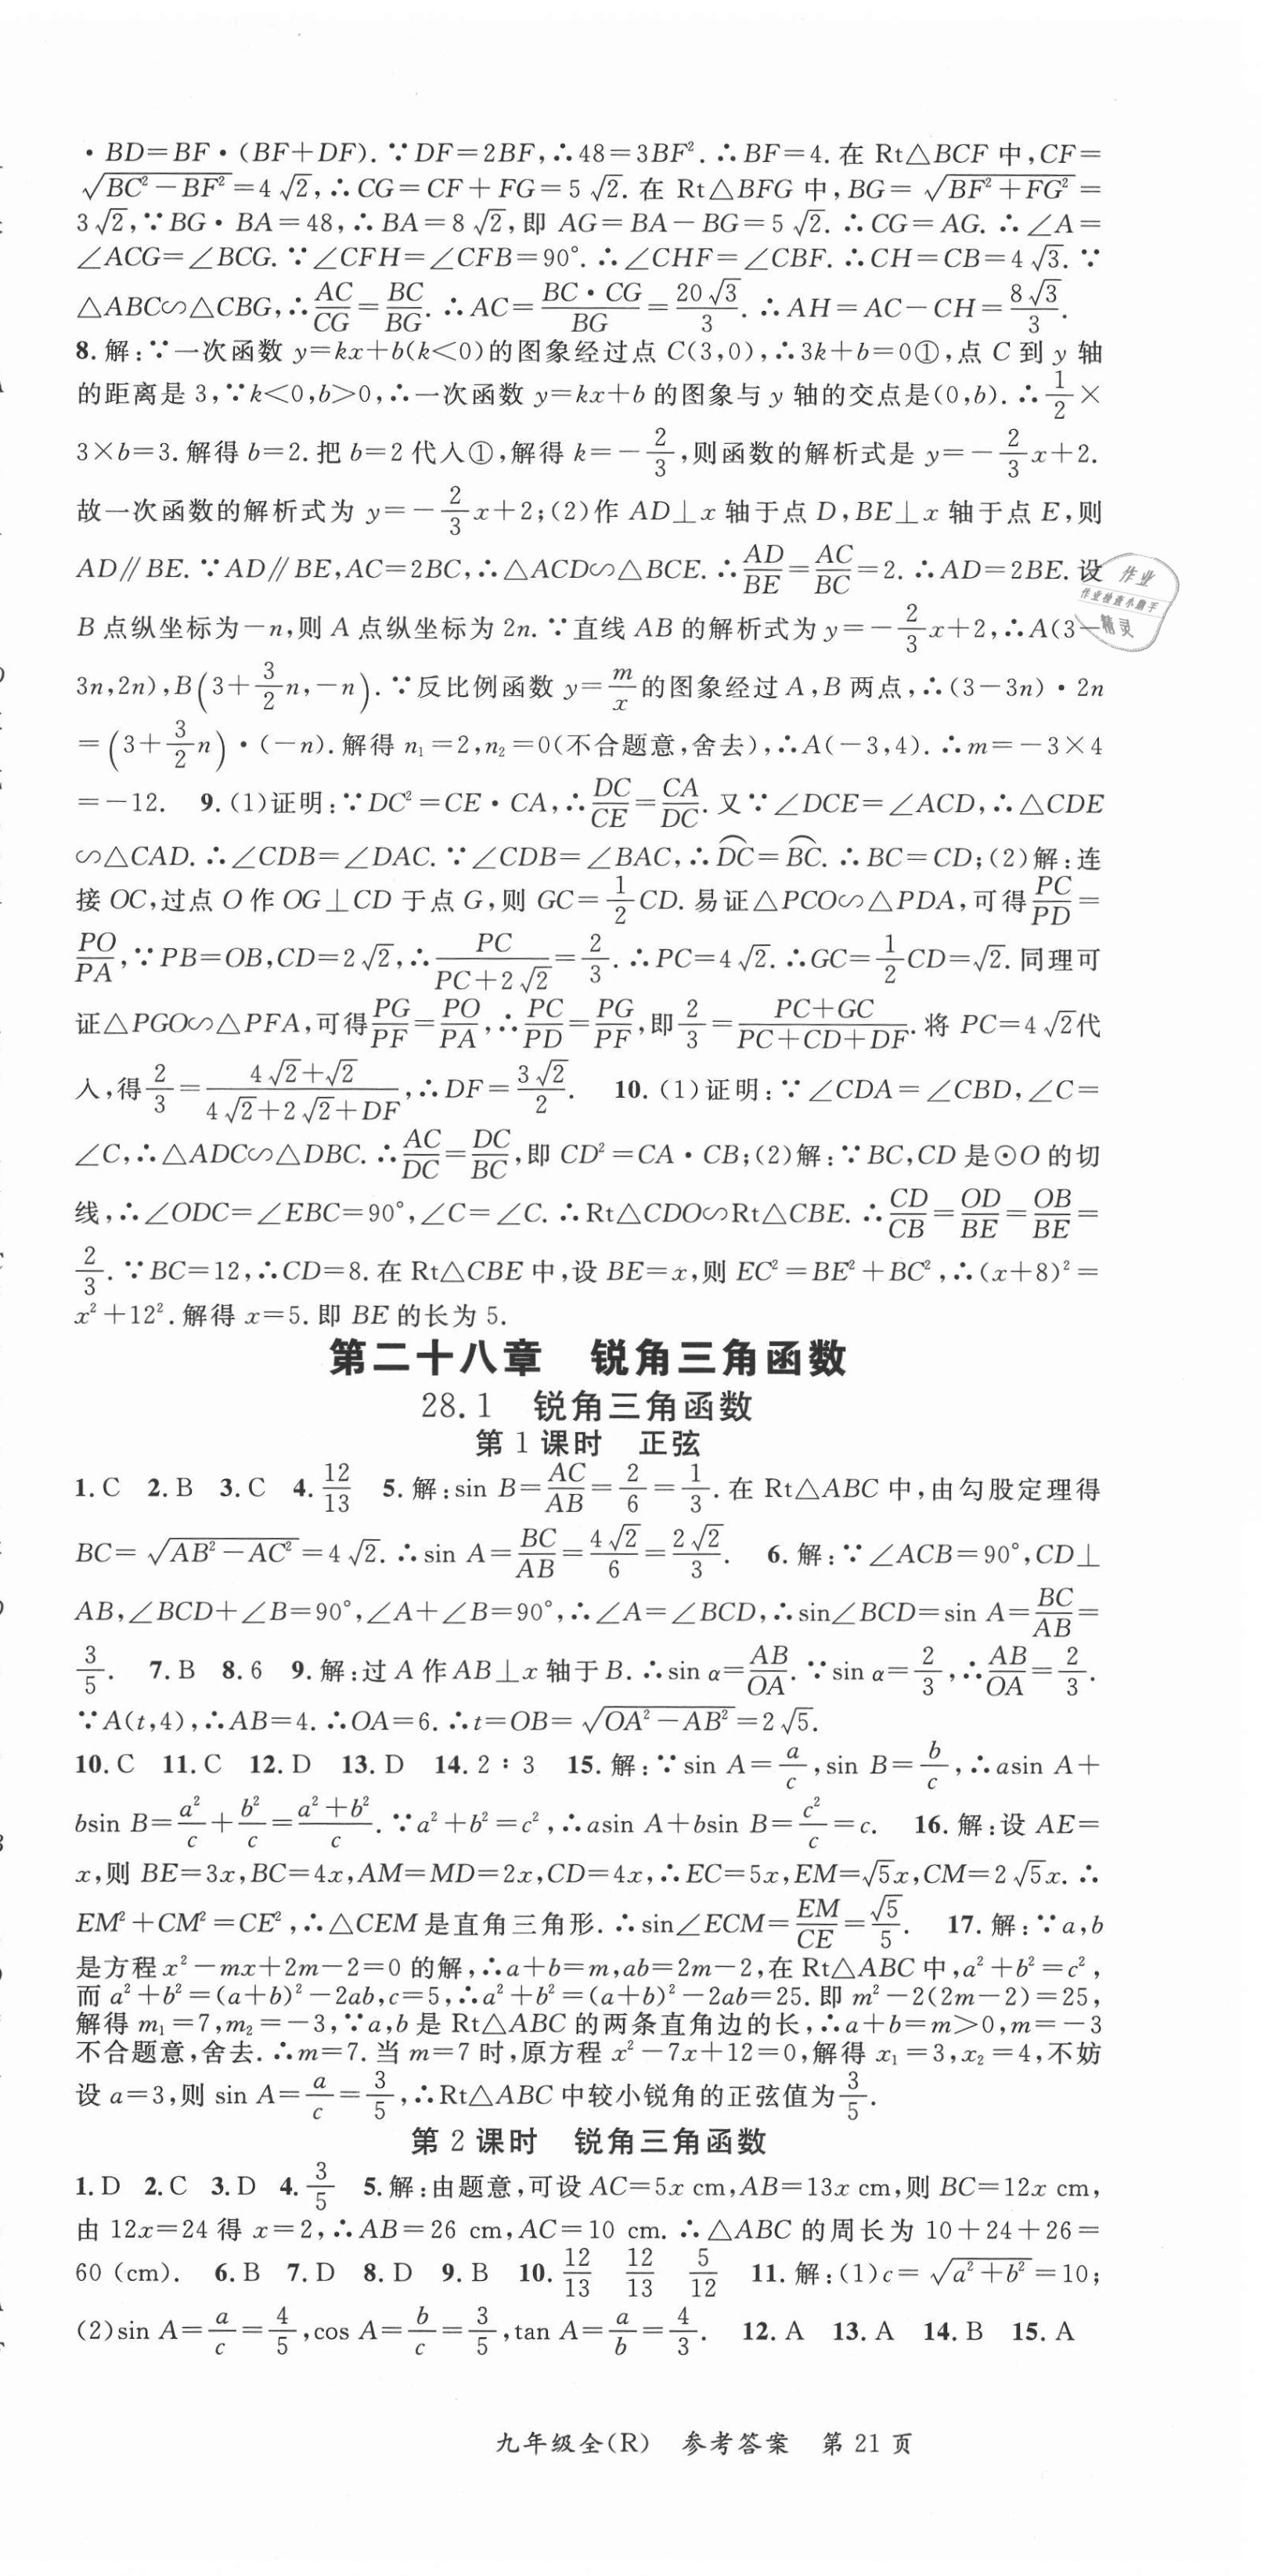 ·BD=BF·(BF+DF).∵DF=2BF,∴48=3BF².∴BF=4.在 Rt△BCF 中,CF=
√(BC²-BF²)=4√2,∴CG=CF+FG=5√2.在 Rt△BFG 中,BG=√(BF²+FG²)=
3√2,∵BG·BA=48,∴BA=8√2,即 AG=BA-BG=5√2.∴CG=AG.∴∠A=
∠ACG=∠BCG.∵∠CFH=∠CFB=90°.∴∠CHF=∠CBF.∴CH=CB=4√3.∵
△ABC∽△CBG,∴AC/CG=BC/BG.∴AC=BC·CG/BG=20√3/3.∴AH=AC-CH=8√3/3.
8.解:∵一次函数 y=kx+b(k<0)的图象经过点 C(3,0),∴3k+b=0①,点 C 到 y 轴
的距离是 3,∵k<0,b>0,∴一次函数 y=kx+b 的图象与 y 轴的交点是(0,b).∴1/2×
3×b=3.解得 b=2.把 b=2 代入①,解得 k=-2/3,则函数的解析式是 y=-2/3x+2.
故一次函数的解析式为 y=-2/3x+2;(2)作 AD⊥x 轴于点 D,BE⊥x 轴于点 E,则
AD∥BE.∵AD∥BE,AC=2BC,∴△ACD∽△BCE.∴AD/BE=AC/BC=2.∴AD=2BE.设
B 点纵坐标为-n,则 A 点纵坐标为 2n.∵直线 AB 的解析式为 y=-2/3x+2,∴A(3-
3n,2n),B(3+3/2n,-n).∵反比例函数 y=m/x的图象经过 A,B 两点,∴(3-3n)·2n
=(3+3/2n)·(-n).解得 n₁=2,n₂=0(不合题意,舍去),∴A(-3,4).∴m=-3×4
=-12. 9.(1)证明:∵DC²=CE·CA,∴DC/CE=CA/DC.又∵∠DCE=∠ACD,∴△CDE
∽△CAD.∴∠CDB=∠DAC.∵∠CDB=∠BAC,∴⌒DC=⌒BC.∴BC=CD;(2)解:连
接 OC,过点 O 作 OG⊥CD 于点 G,则 GC=1/2CD.易证△PCO∽△PDA,可得PC/PD=
PO/PA,∵PB=OB,CD=2√2,∴PC/(PC+2√2)=2/3.∴PC=4√2.∴GC=1/2CD=√2.同理可
证△PGO∽△PFA,可得PG/PF=PO/PA,∴PC/PD=PG/PF,即2/3=(PC+GC)/(PC+CD+DF).将 PC=4√2代
入,得2/3=(4√2+√2)/(4√2+2√2+DF),∴DF=3√2/2. 10.(1)证明:∵∠CDA=∠CBD,∠C=
∠C,∴△ADC∽△DBC.∴AC/DC=DC/BC,即 CD²=CA·CB;(2)解:∵BC,CD 是⊙O 的切
线,∴∠ODC=∠EBC=90°,∠C=∠C.∴Rt△CDO∽Rt△CBE.∴CD/CB=OD/BE=OB/BE=
2/3.∵BC=12,∴CD=8.在 Rt△CBE 中,设 BE=x,则 EC²=BE²+BC²,∴(x+8)²=
x²+12².解得 x=5.即 BE 的长为 5.
第二十八章 锐角三角函数
28.1 锐角三角函数
第 1 课时 正弦
1.C 2.B 3.C 4.12/13 5.解:sin B=AC/AB=2/6=1/3.在 Rt△ABC 中,由勾股定理得
BC=√(AB²-AC²)=4√2.∴sin A=BC/AB=4√2/6=2√2/3. 6.解:∵∠ACB=90°,CD⊥
AB,∠BCD+∠B=90°,∠A+∠B=90°,∴∠A=∠BCD,∴sin∠BCD=sin A=BC/AB=
3/5. 7.B 8.6 9.解:过 A 作 AB⊥x 轴于 B.∴sin α=AB/OA.∵sin α=2/3,∴AB/OA=2/3.
∵A(t,4),∴AB=4.∴OA=6.∴t=OB=√(OA²-AB²)=2√5.
10.C 11.C 12.D 13.D 14.2∶3 15.解:∵sin A=a/c,sin B=b/c,∴asin A+
bsin B=a²/c+b²/c=(a²+b²)/c.∵a²+b²=c²,∴asin A+bsin B=c²/c=c. 16.解:设 AE=
x,则 BE=3x,BC=4x,AM=MD=2x,CD=4x,∴EC=5x,EM=√5x,CM=2√5x.∴
EM²+CM²=CE²,∴△CEM 是直角三角形.∴sin∠ECM=EM/CE=√5/5. 17.解:∵a,b
是方程 x²-mx+2m-2=0 的解,∴a+b=m,ab=2m-2,在 Rt△ABC 中,a²+b²=c²,
而 a²+b²=(a+b)²-2ab,c=5,∴a²+b²=(a+b)²-2ab=25.即 m²-2(2m-2)=25,
解得 m₁=7,m₂=-3,∵a,b 是 Rt△ABC 的两条直角边的长,∴a+b=m>0,m=-3
不合题意,舍去.∴m=7.当 m=7 时,原方程 x²-7x+12=0,解得 x₁=3,x₂=4,不妨
设 a=3,则 sin A=a/c=3/5,∴Rt△ABC 中较小锐角的正弦值为3/5.
第 2 课时 锐角三角函数
1.D 2.C 3.D 4.3/5 5.解:由题意,可设 AC=5x cm,AB=13x cm,则 BC=12x cm,
由 12x=24 得 x=2,∴AB=26 cm,AC=10 cm.∴△ABC 的周长为 10+24+26=
60 (cm). 6.B 7.D 8.D 9.B 10.12/13 12/13 5/12 11.解:(1)c=√(a²+b²)=10;
(2)sin A=a/c=4/5,cos A=b/c=3/5,tan A=a/b=4/3. 12.A 13.A 14.B 15.A
九年级全(R) 参考答案 第 21 页
作业
作业检查小助手
精灵